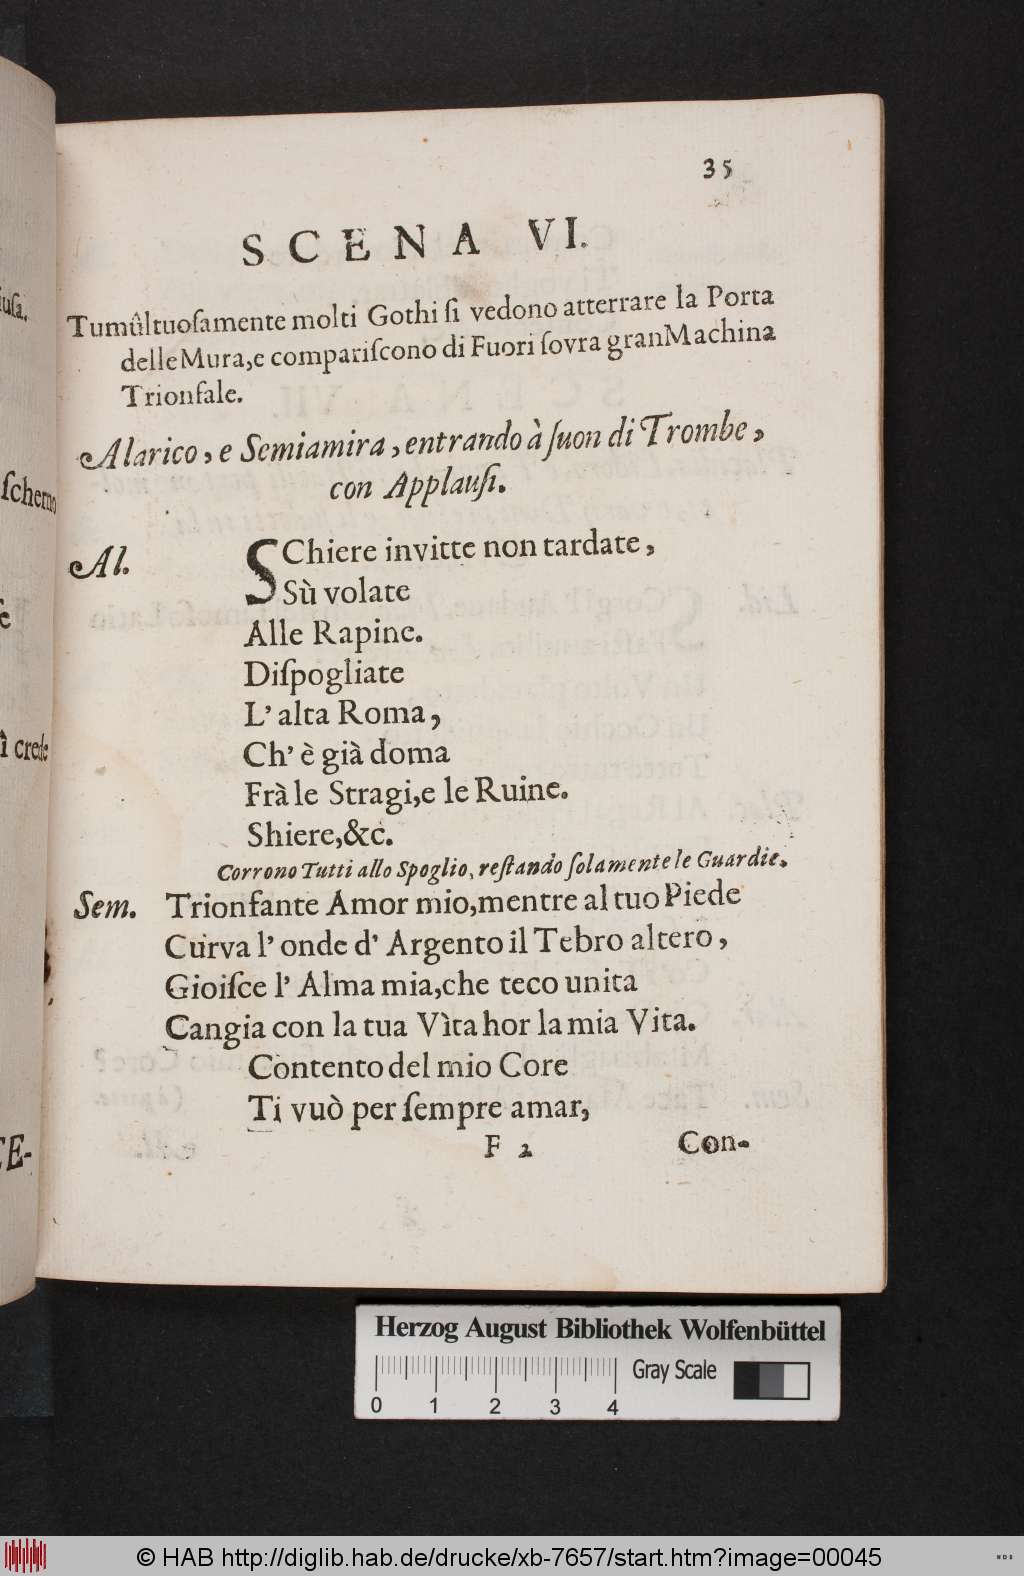 35
SCENA VI.
Tumûltuoſamente molti Gothi ſi vedono atterrare la Porta
delle Mura,e compariſcono di Fuori ſovra gran Machina
Trionfale.
Alarico, e Semiamira, entrando à ſuon di Trombe,
con Applauſi.
Al. SChiere invitte non tardate,
Sù volate
Alle Rapine.
Diſpogliate
L' alta Roma,
Ch' è già doma
Frà le Stragi,e le Ruine.
Shiere,&c.
Corrono Tutti allo Spoglio, reſtando ſolamente le Guardie.
Sem. Trionfante Amor mio,mentre al tuo Piede
Curva l' onde d' Argento il Tebro altero,
Gioiſce l' Alma mia,che teco unita
Cangia con la tua Vìta hor la mia Vita.
Contento del mio Core
Ti vuò per ſempre amar,
F 2 Con-
ſcherno
crede
CE-
Herzog August Bibliothek Wolfenbüttel
Gray Scale
0 1 2 3 4
© HAB http://diglib.hab.de/drucke/xb-7657/start.htm?image=00045